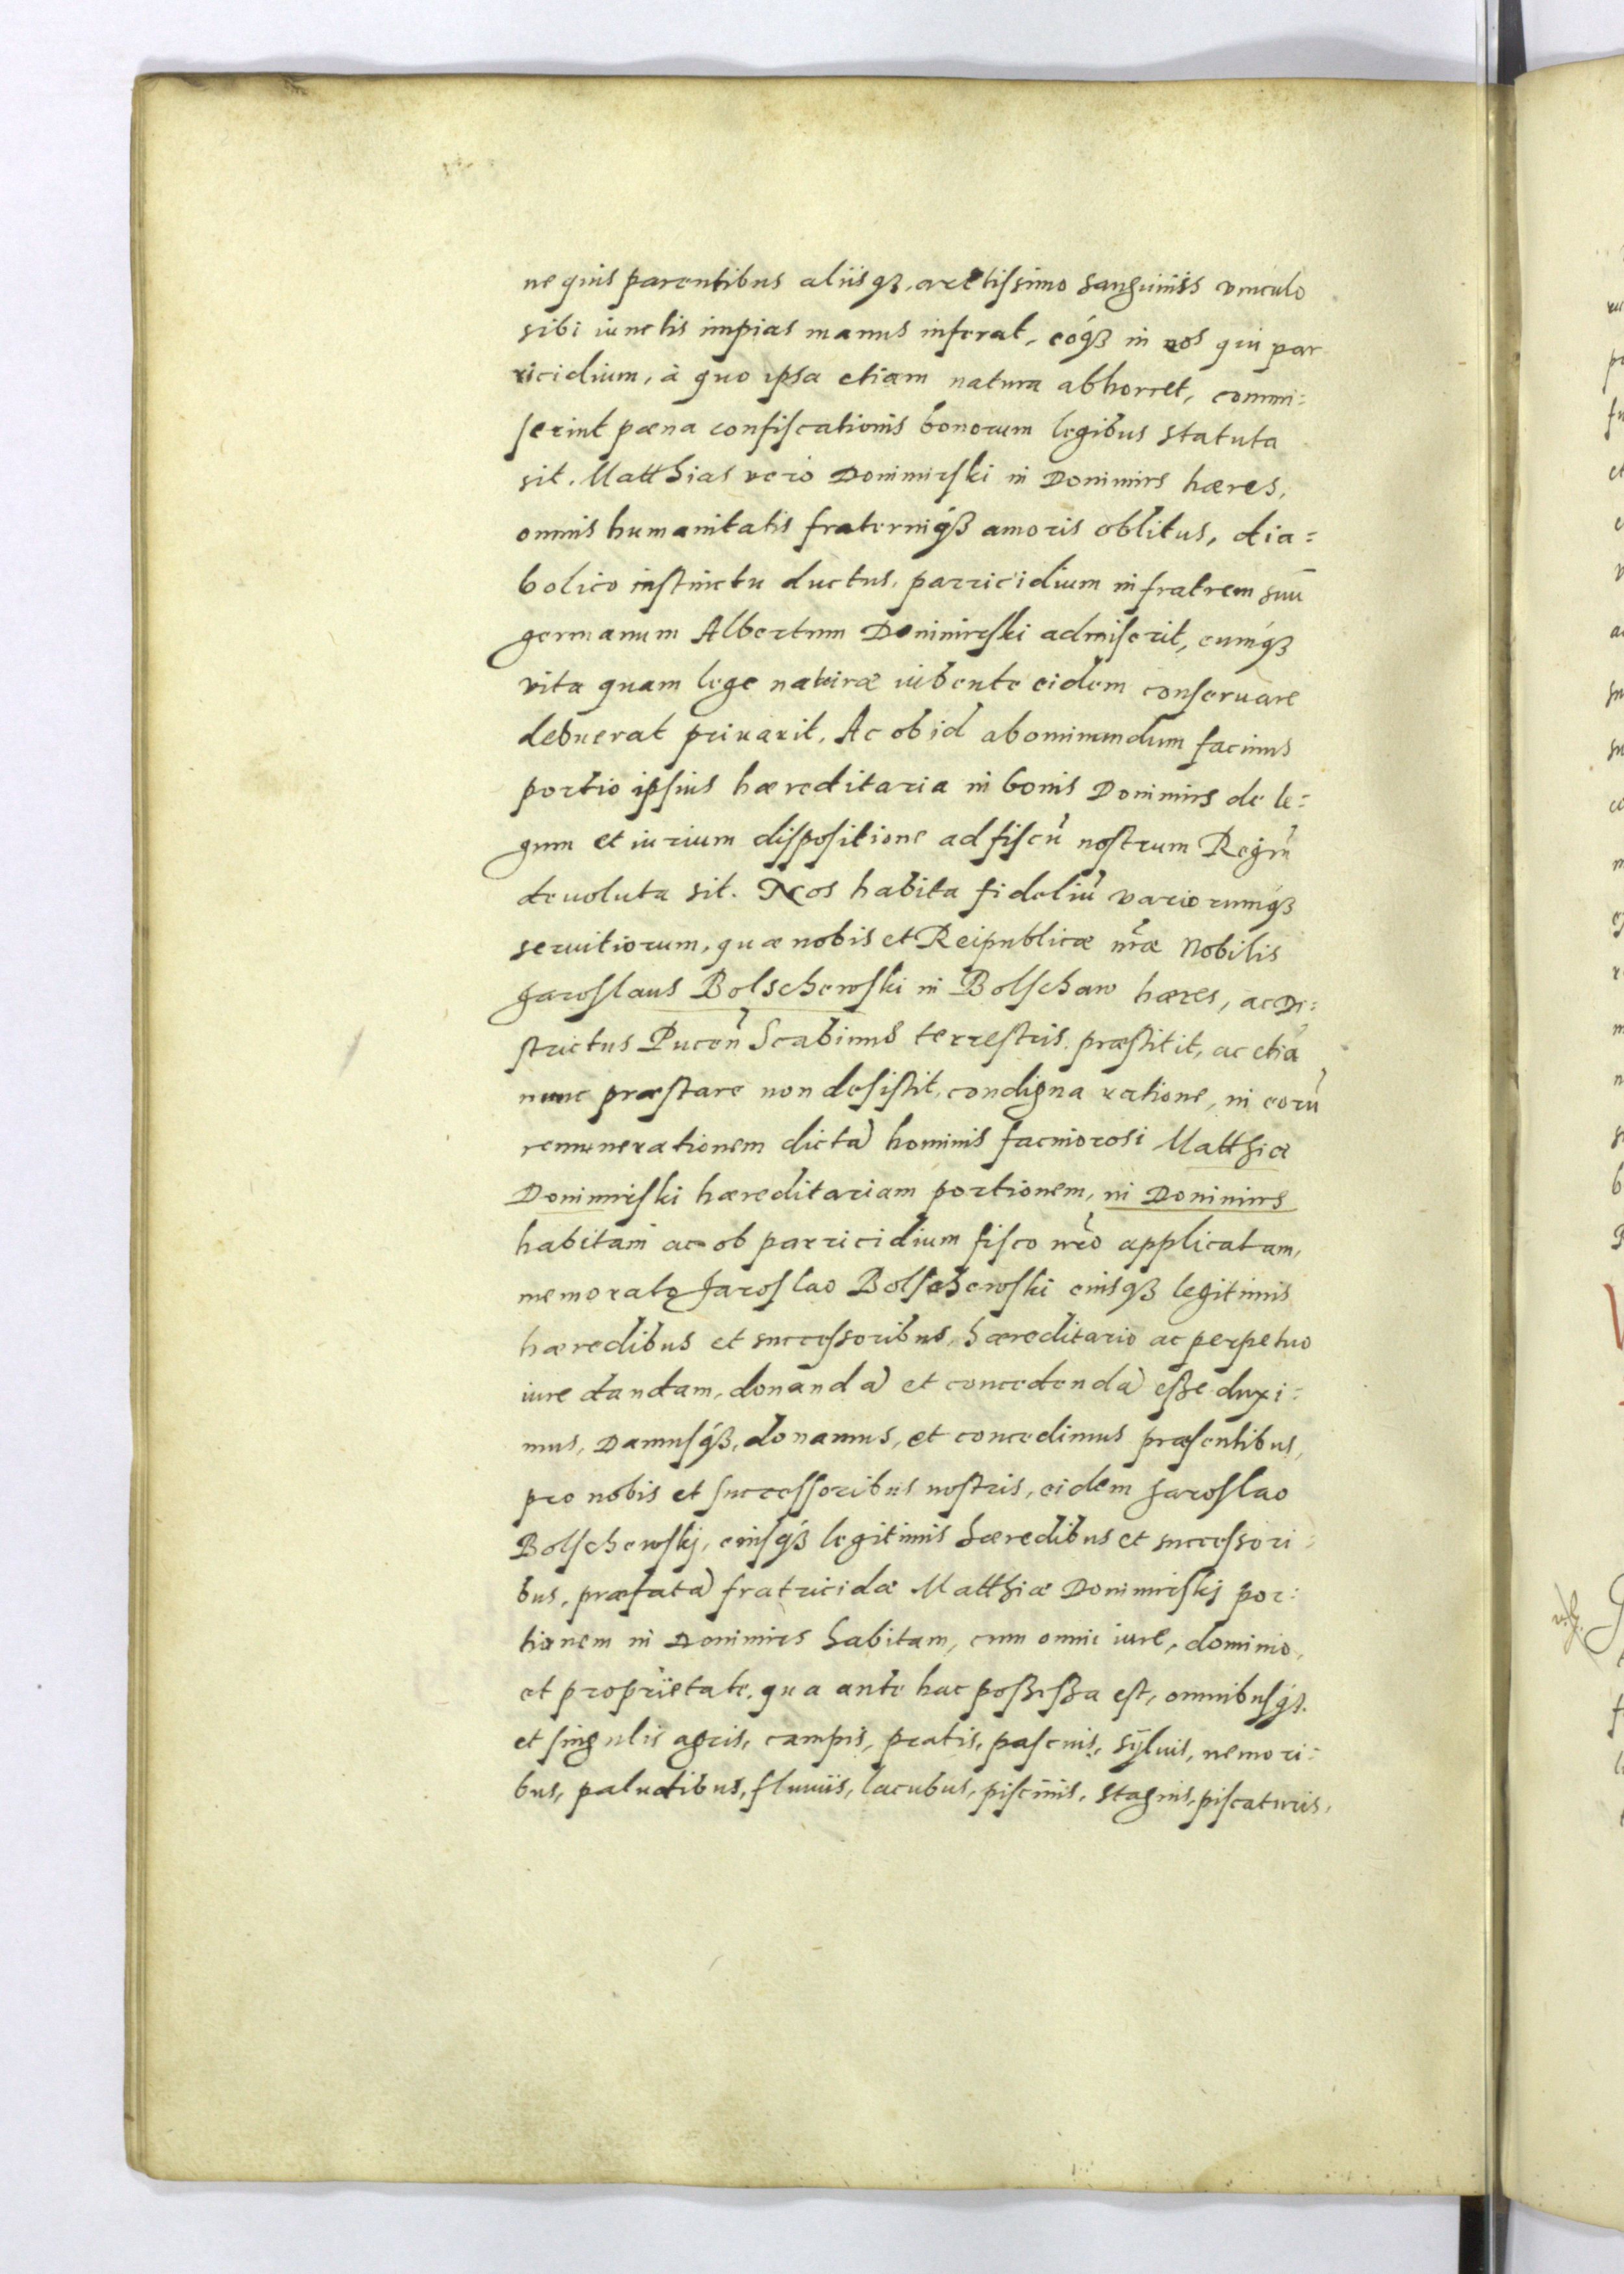 ne quis parentibus aliisqȝ, arctissimo sanguinis vinculo
sibi iunctis impias manus inferat, eóqȝ in eos qui par
ricidium, à quo ipsa etiam natura abhorret, commi=
serint pæna confiscationis bonorum legibus statuta
sit. Matthias verò Donimirski in Donimirs hæres,
omnis humanitatis fraterniqȝ amoris oblitus, dia=
bolico instinctu ductus, parricidium in fratrem suū
germanum Albertum Donimirski admiserit, eumqȝ
vita quam lege naturæ iubente eidem conseruare
debuerat priuarit. Ac ob id abominandum facinus
portio ipsius hæreditaria in bonis Donimirs de le=
gum et iurium dispositione ad fiscū nostrum Regiū
deuoluta sit. Nos habita fideliū variorumqȝ
seruitiorum, quæ nobis et Reipublicæ nr̄æ Nobilis
Jaroslaus Bolschewski in Bolschaw hæres, ac Di=
strictus Pucen̄ Scabinus terrestris præstitit, ac etiā
nunc præstare non desistit, condigna ratione, in eorū
remunerationem dictā hominis facinorosi Matthiæ
Donimirski hæreditariam portionem, in Donimirs
habitam ac ob parricidium fisco nr̄o applicatam,
memorato Jaroslao Bolschewski eiusqȝ legitimis
hæredibus et successoribus hæreditario ac perpetuo
iure dandam, donandā et concedendā eße duxi=
mus, Damusqȝ, donamus, et concedimus præsentibus,
pro nobis et successoribus nostris, eidem Jaroslao
Bolschewskj, eiusqȝ legitimis hæredibus et successori=
bus, præfatā fratricidæ Matthiæ Donimirskj por=
tionem in Donimirs habitam, cum omni iure, dominio,
et proprietate, qua ante hac poßeßa est, omnibusqȝ.
et singulis agris, campis, pratis, pascuis, sÿluis, nemori=
bus, paludibus, fluuiis, lacubus, piscinis, stagnis, piscaturis,